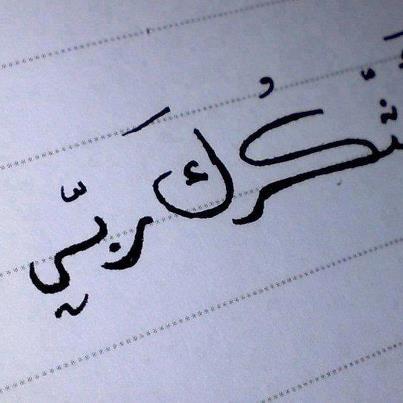 شكُرك رَبّي